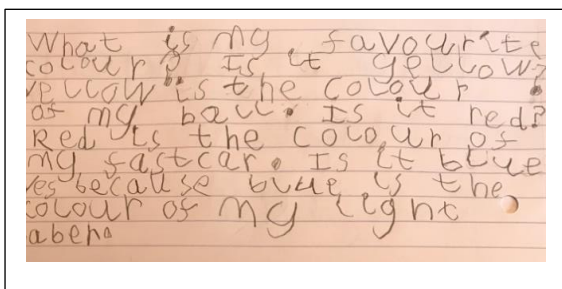 What is my favourite
colour? Is it yellow?
yellow is the colour
of my ball. Is it red?
Red is the colour of
my fastcar. Is it blue
yes because blue is the
colour of my light